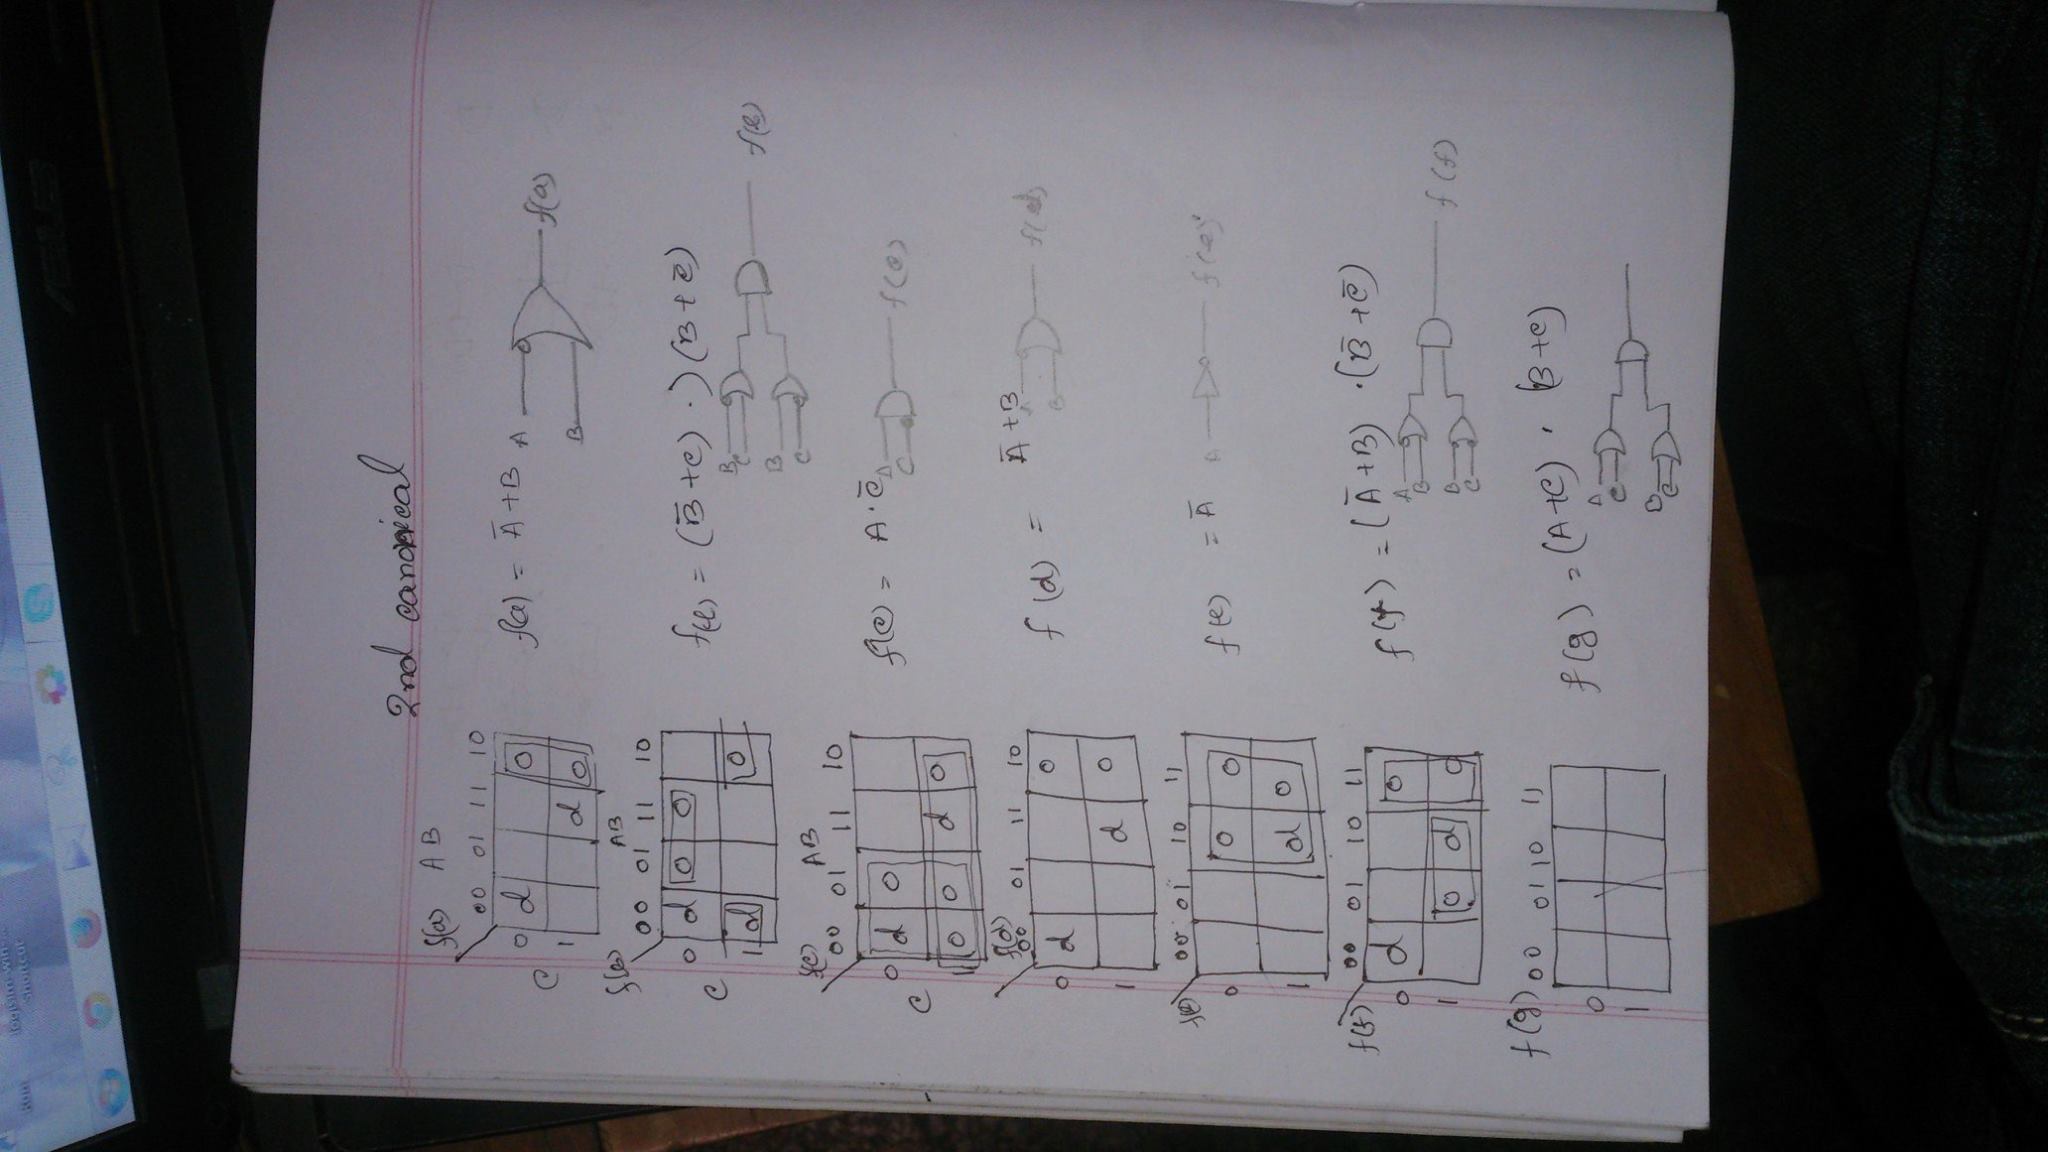 2nd canonical
f(a) AB
00 01 11 10
0 d 0
C 1 d 0
f(a) = A̅ + B
A
B
f(a)
f(b) AB
00 01 11 10
0 d 0 0
C
1 d 0
f(b) = (B̅ + C) · ) (B + C̅)
B
C
B
C
f(b)
f(c) AB
00 01 11 10
0 d 0
C
1 0 0 d 0
f(c) = A · C̅
A
C
f(c)
f(d)
00 01 11 10
0 d 0
1 d 0
f(d) = A̅ + B
A
B
f(d)
f(e)
00 01 10 11
0 0 0
1 d 0
f(e) = A̅
A
f(e)
f(f)
00 01 10 11
0 d 0
1 0 d 0
f(f) = (A̅ + B) · (B̅ + C̅)
A
B
B
C
f(f)
f(g)
00 01 10 11
0
1
f(g) = (A + C) · (B + C)
A
C
B
C